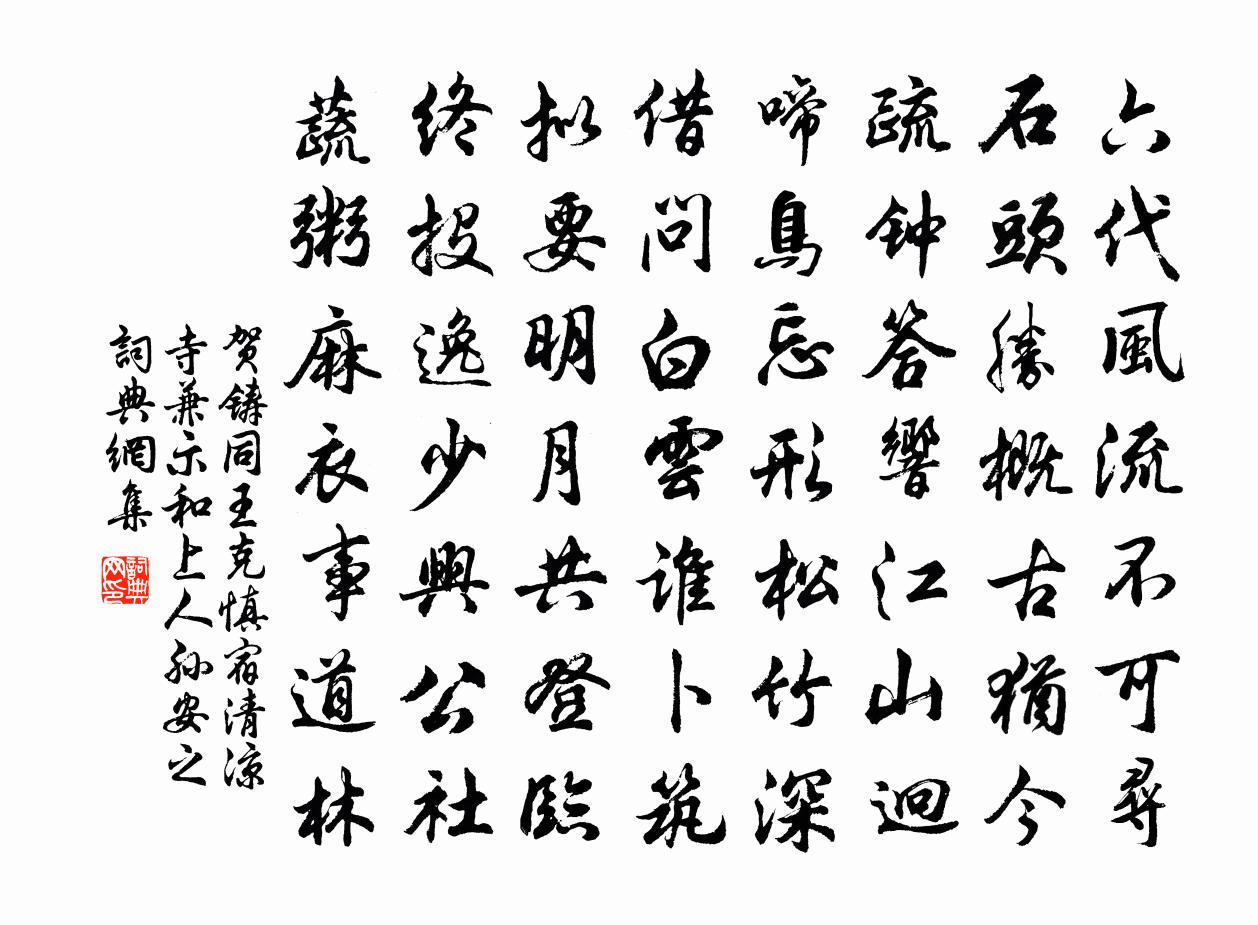 六代風流不可尋
石頭勝概古猶今
疏钟答響江山迥
啼鳥忘形松竹深
借問白雲誰卜筑
拟要明月共登臨
终投逸少興公社
蔬粥麻衣事道林
贺鑄同王克慎宿清凉
寺兼示和上人孙安之
詞典網集
詞典网印